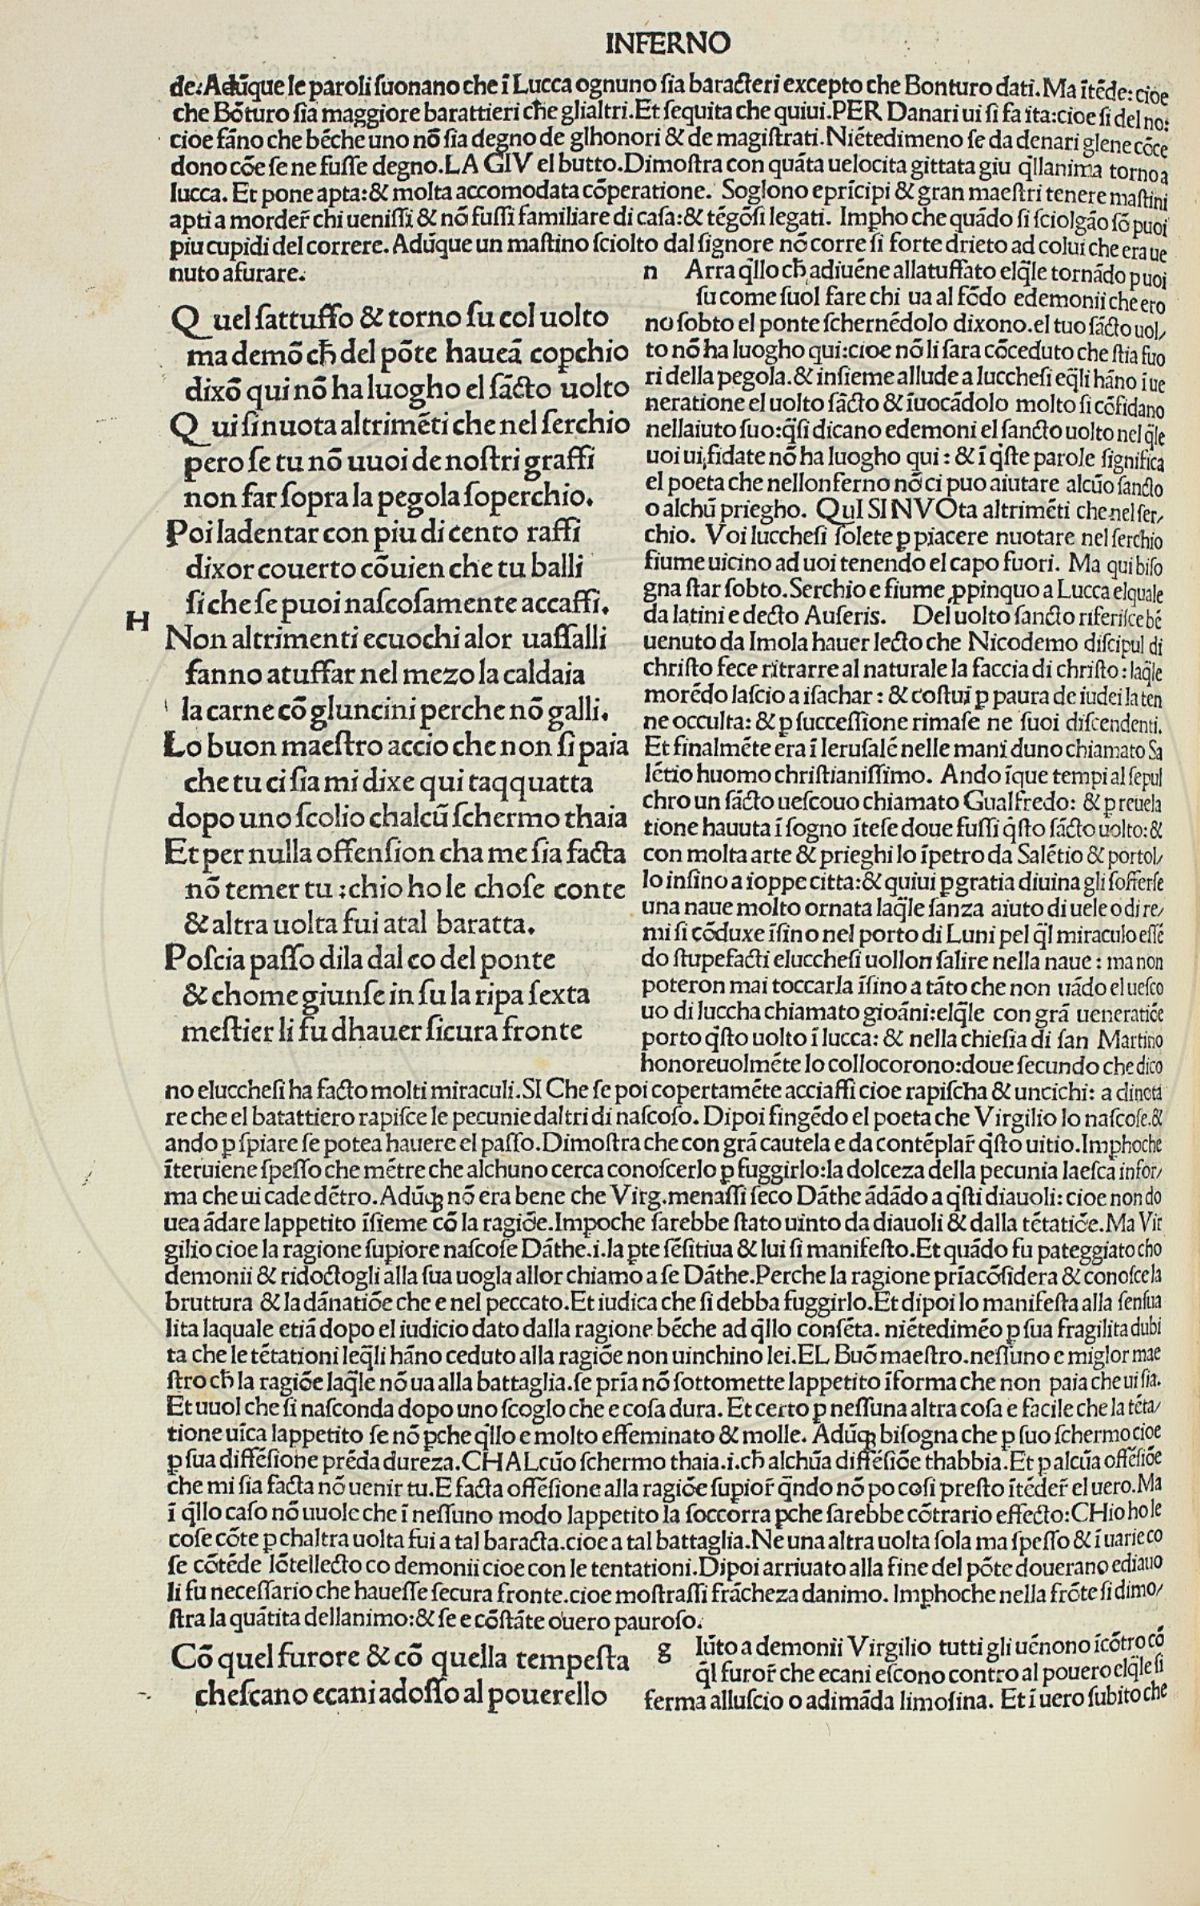 INFERNO
de: Adũque le paroli suonano che ĩ Lucca ognuno sia baracteri excepto che Bonturo dati. Ma ĩtẽde: cioe
che Bõturo sia maggiore barattieri cħe glialtri. Et sequita che quiui. PER Danari ui si fa ita: cioe si del no:
cioe fãno che bẽche uno nõ sia degno de glhonori & de magistrati. Niẽtedimeno se da denari glene cõce
dono cõe se ne fusse degno. LA GIV el butto. Dimostra con quãta uelocita gittata giu q̃llanima torno a
lucca. Et pone apta: & molta accomodata cõperatione. Soglono eprĩcipi & gran maestri tenere mastini
apti a morder̃ chi uenissi & nõ fussi familiare di casa: & tẽgõsi legati. Impho che quãdo si sciolgão sõ puoi
piu cupidi del correre. Adũque un mastino sciolto dal signore nõ corre si forte drieto ad colui che era ue
nuto a furare.
Q uel sattuffo & torno su col uolto
ma demõ cħ del põte haueã copchio
dixõ qui nõ ha luogho el sãcto uolto
Q ui si nuota altrimẽti che nel serchio
pero se tu nõ uuoi de nostri graffi
non far sopra la pegola soperchio.
Poi ladentar con piu di cento raffi
dixor couerto cõuien che tu balli
si che se puoi nascosamente accaffi.
H
Non altrimenti ecuochi alor uassalli
fanno atuffar nel mezo la caldaia
la carne cõ gluncini perche nõ galli.
Lo buon maestro accio che non si paia
che tu ci sia mi dixe qui taqquatta
dopo uno scolio chalcũ schermo thaia
Et per nulla offension cha me sia facta
nõ temer tu: chio ho le chose conte
& altra uolta fui atal baratta.
Poscia passo dila dal co del ponte
& chome giunse in su la ripa sexta
mestier li fu dhauer sicura fronte
n Arra q̃llo cħ adiuẽne allatuffato elq̃le tornãdo puoi
su come suol fare chi ua al fõdo edemonii che ero
no sobto el ponte schernẽdolo dixono. el tuo sãcto uol/
to nõ ha luogho qui: cioe nõ li sara cõceduto che stia fuo
ri della pegola. & insieme allude a lucchesi eq̃li hãno i ue
neratione el uolto sãcto & ĩuocãdolo molto si cõfidano
nellaiuto suo: q̃si dicano edemoni el sancto uolto nel q̃le
uoi ui, fidate nõ ha luogho qui: & ĩ q̃ste parole significa
el poeta che nellonferno nõ ci puo aiutare alcũo sancto
o alchũ priegho. QuI SI NVOta altrimẽti che nel ser/
chio. Voi lucchesi solete ꝑ piacere nuotare nel serchio
fiume uicino ad uoi tenendo el capo fuori. Ma qui biso
gna star sobto. Serchio e fiume ꝓpinquo a Lucca elquale
da latini e decto Auseris. Del uolto sancto riferisce bẽ
uenuto da Imola hauer lecto che Nicodemo discipul di
christo fece ritrarre al naturale la faccia di christo: laq̃le
morẽdo lascio a isachar: & costui ꝑ paura de iudei la ten
ne occulta: & ꝑ successione rimase ne suoi discendenti.
Et finalmẽte era ĩ Ierusalẽ nelle mani duno chiamato Sa
lẽtio huomo christianissimo. Ando ĩque tempi al sepul
chro un sãcto uescouo chiamato Gualfredo: & ꝑ reuela
tione hauuta ĩ sogno ĩtese doue fussi q̃sto sãcto uolto: &
con molta arte & prieghi lo ĩpetro da Salẽtio & portol/
lo insino a ioppe citta: & quiui ꝑgratia diuina gli sofferse
una naue molto ornata laq̃le sanza aiuto di uele o di re/
mi si cõduxe ĩsino nel porto di Luni pel q̃l miraculo essẽ
do stupefacti elucchesi uollon salire nella naue: ma non
poteron mai toccarla ĩsino a tãto che non uãdo el uesco
uo di luccha chiamato gioãni: elq̃le con grã ueneratiõe
porto q̃sto uolto ĩ lucca: & nella chiesia di san Martino
honoreuolmẽte lo collocorono: doue secundo che dico
no elucchesi ha facto molti miraculi. SI Che se poi copertamẽte acciaffi cioe rapischa & uncichi: a dinota
re che el batattiero rapisce le pecunie daltri di nascoso. Dipoi fingẽdo el poeta che Virgilio lo nascose. &
ando ꝑ spiare se potea hauere el passo. Dimostra che con grã cautela e da contẽplar̃ q̃sto uitio. Imꝑhoche
ĩteruiene spesso che mẽtre che alchuno cerca conoscerlo ꝑ fuggirlo: la dolceza della pecunia laesca in for/
ma che ui cade dẽtro. Adũqꝫ nõ era bene che Virg. menassi seco Dãthe ãdãdo a q̃sti diauoli: cioe non do
uea ãdare lappetito ĩsieme cõ la ragiõe. Impoche sarebbe stato uinto da diauoli & dalla tẽtatiõe. Ma Vir
gilio cioe la ragione supiore nascose Dãthe. i. la pte sẽsitiua & lui si manifesto. Et quãdo fu pateggiato cho
demonii & ridoctogli alla sua uogla allor chiamo a se Dãthe. Perche la ragione prĩa cõsidera & conosce la
bruttura & la dãnatiõe che e nel peccato. Et iudica che si debba fuggirlo. Et dipoi lo manifesta alla sensua
lita laquale etiã dopo el iudicio dato dalla ragione bẽche ad q̃llo consẽta. niẽtedimẽo ꝑ sua fragilita dubi
ta che le tẽtationi leq̃li hãno ceduto alla ragiõe non uinchino lei. EL Buõ maestro. nessuno e miglor mae
stro cħ la ragiõe laq̃le nõ ua alla battaglia. se prĩa nõ sottomette lappetito ĩforma che non paia che ui sia.
Et uuol che si nasconda dopo uno scoglo che e cosa dura. Et certo ꝑ nessuna altra cosa e facile che la tẽta/
tione uĩca lappetito se nõ ꝑche q̃llo e molto effeminato & molle. Adũqꝫ bisogna che ꝑ suo schermo cioe
ꝑ sua diffẽsione prẽda dureza. CHALcũo schermo thaia. i. cħ alchũa diffẽsiõe thabbia. Et ꝑ alcũa offẽsiõe
che mi sia facta nõ uenir tu. E facta offẽsione alla ragiõe supior̃ q̃ndo nõ po cosi presto ĩtẽder̃ el uero. Ma
ĩ q̃llo caso nõ uuole che ĩ nessuno modo lappetito la soccorra ꝑche sarebbe cõtrario effecto: CHio ho le
cose cõte ꝑ chaltra uolta fui a tal baracta. cioe a tal battaglia. Ne una altra uolta sola ma spesso & ĩ uarie co
se cõtẽde lõtellecto co demonii cioe con le tentationi. Dipoi arriuato alla fine del põte douerano ediauo
li fu necessario che hauesse secura fronte. cioe mostrassi frãcheza danimo. Imꝑhoche nella frõte si dimo/
stra la quãtita dellanimo: & se e cõstãte ouero pauroso.
Cõ quel furore & cõ quella tempesta
chescano ecani adosso al pouerello
g Iũto a demonii Virgilio tutti gli uẽnono ĩcõtro cõ
q̃l furor̃ che ecani escono contro al pouero elq̃le si
ferma alluscio o adimãda limosina. Et ĩ uero subito che